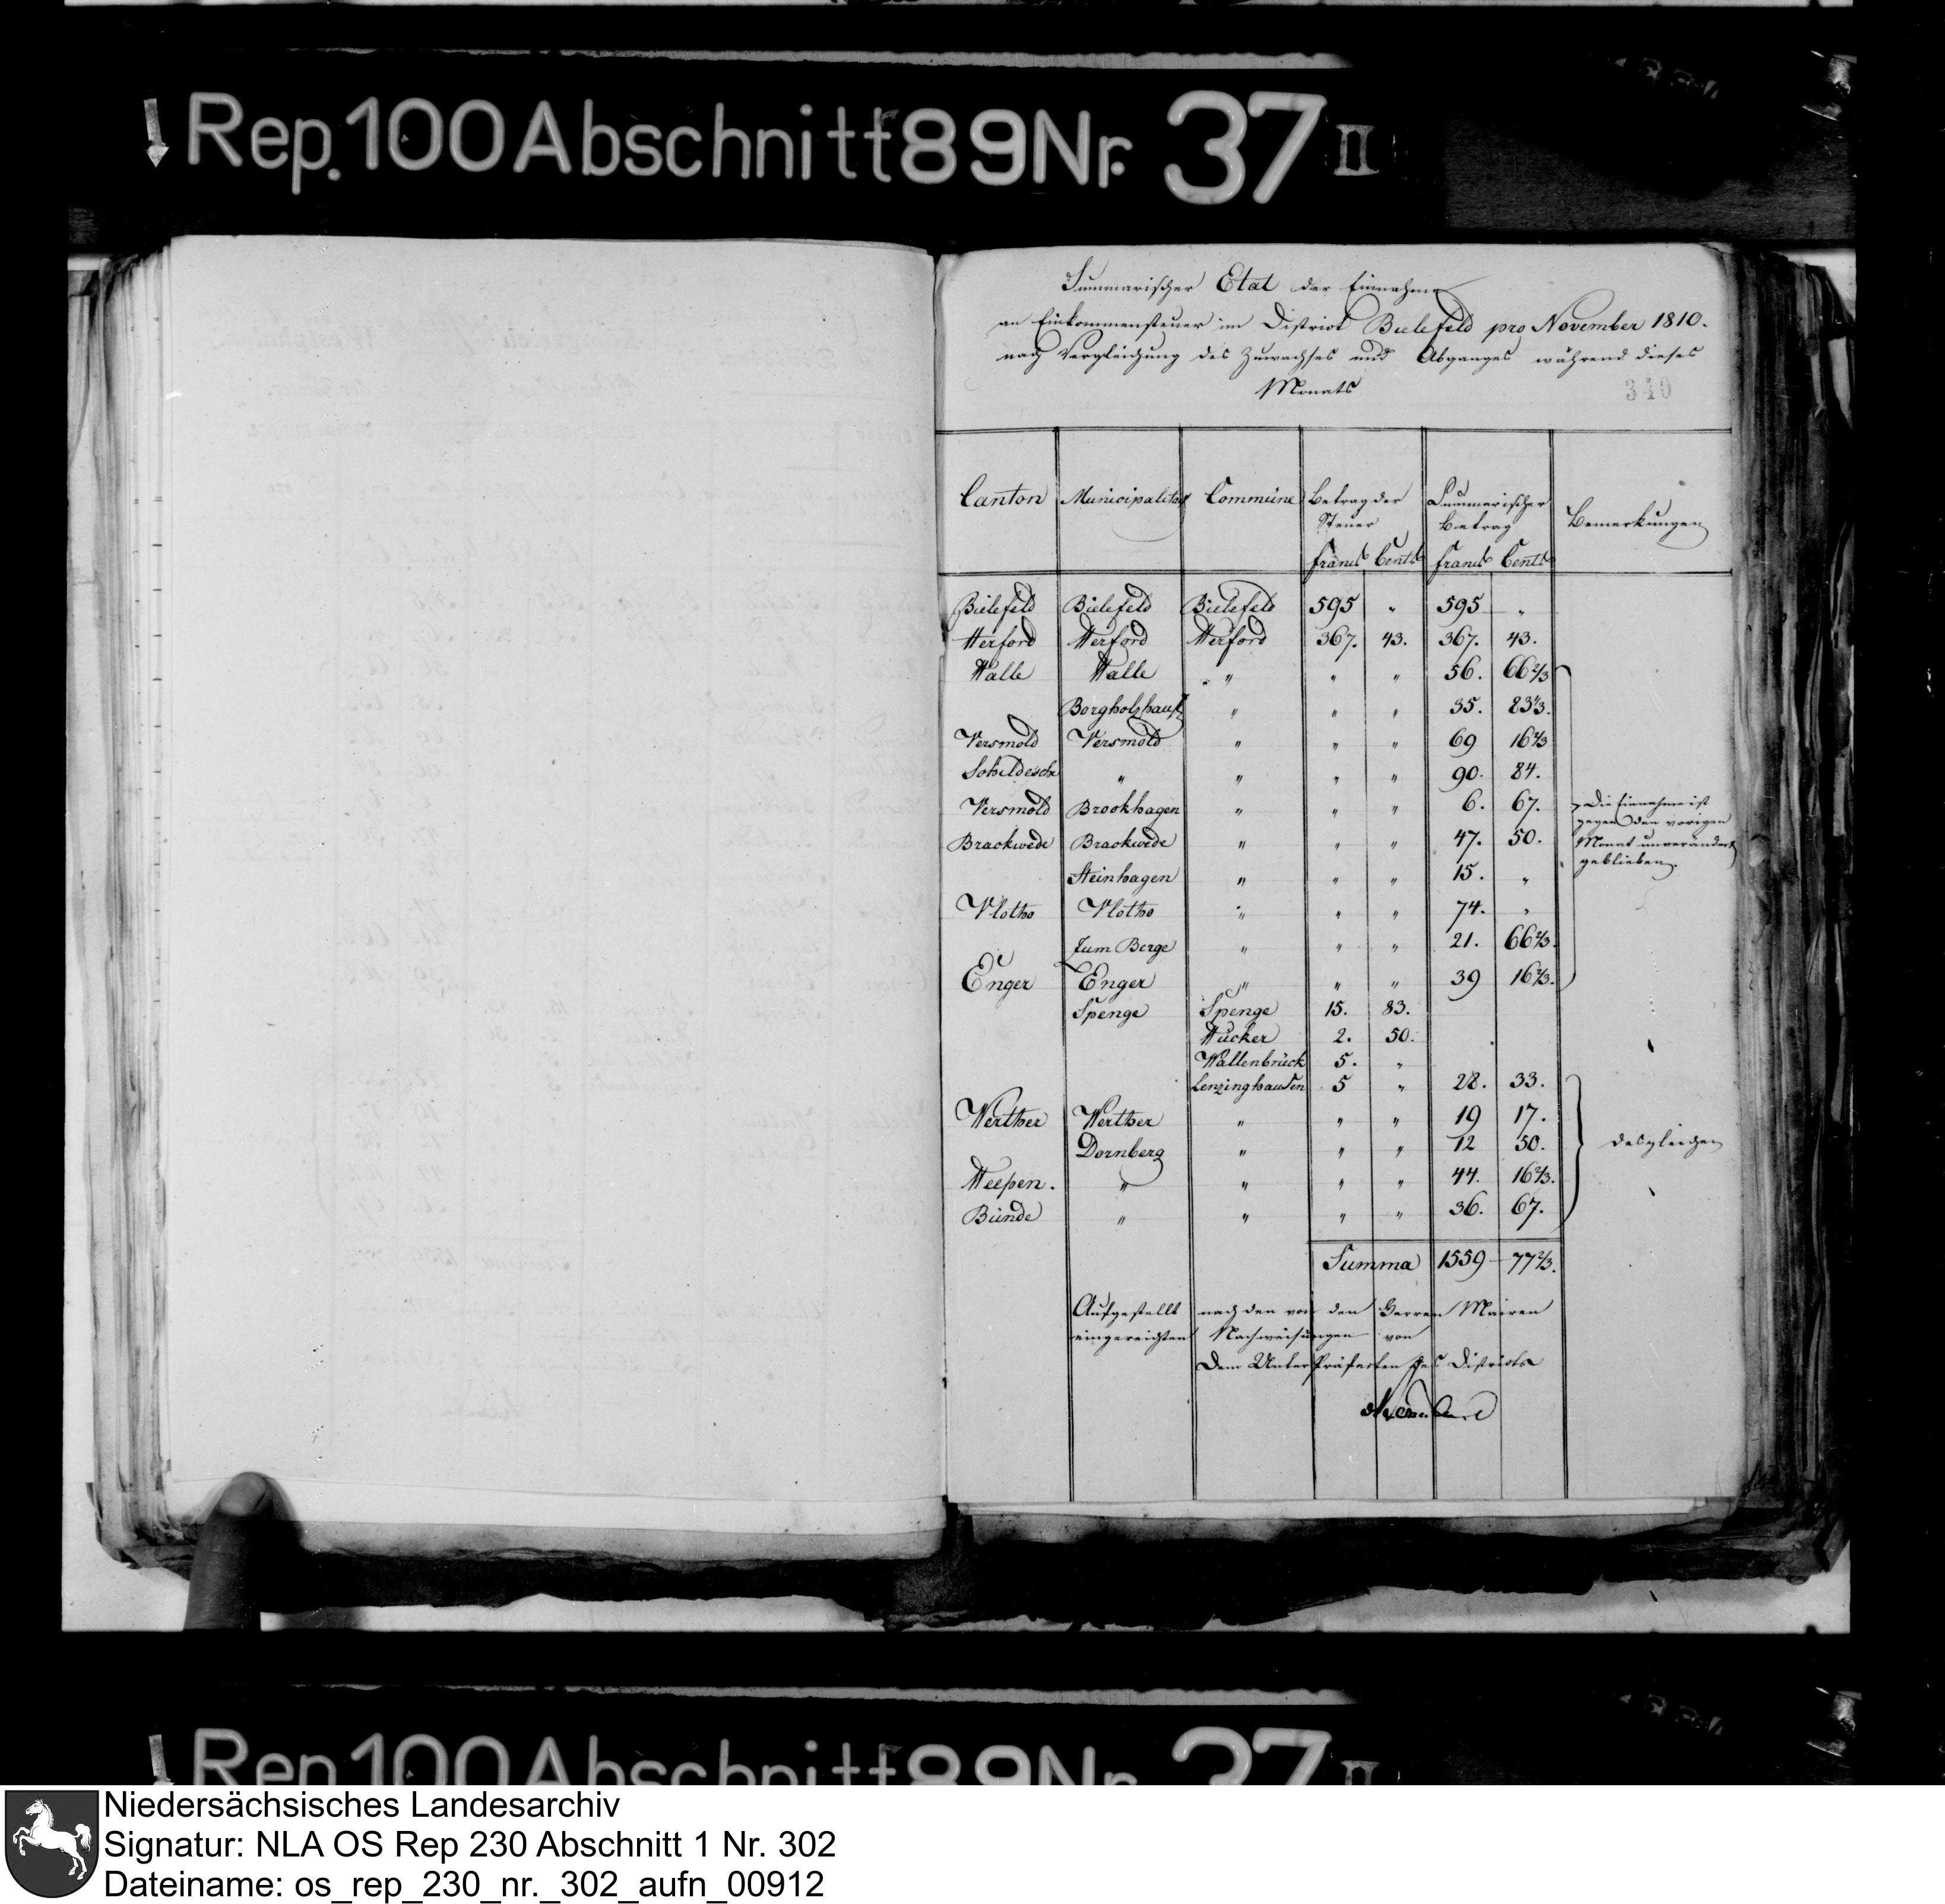 Rep. 100 Abschnitt 89 Nr. 37 II
Summarischer Etat der Einnahme
an Einkommensteuer im District Bielefeld pro November 1810.
nach Vergleichung des Zuwachses und Abganges während dieses
Monats
340
Canton Municipalität Commüne Betrag der Steuer Summarischer Betrag Bemerkungen
francs Cents francs Cents
Bielefeld Bielefeld Bielefeld 595 " 595 "
Herford Herford Herford 367. 43. 367. 43.
Halle Halle " " " 56. 66 2/3
Borgholzhaus. " " " 35. 83 1/3.
Versmold Versmold " " " 69 16 2/3
Schildesche " " " " 90. 84.
Versmold Brockhagen " " " 6. 67.
Die Einnahme ist
gegen den vorigen
Monat unverändert
geblieben.
Brackwede Brackwede " " " 47. 50.
Steinhagen " " " 15. "
Vlotho Vlotho " " " 74. "
Zum Berge " " " 21. 66 2/3.
Enger Enger " " " 39 16 2/3.
Spenge Spenge 15. 83.
Hücker 2. 50.
Wallenbrück 5. "
Lenzinghausen 5 " 28. 33.
Werther Werther " " " 19 17.
Dornberg " " " 12 50. desgleichen
Heepen. " " " " 44. 16 2/3.
Bünde " " " " 36. 67.
Summa 1559 77 2/3.
Aufgestellt nach den von den Herren Mairen
eingereichten Nachweisungen von
dem Unter Präfecten des Districts
Rep. 100 Abschnitt 89 Nr. 37 II
Niedersächsisches Landesarchiv
Signatur: NLA OS Rep 230 Abschnitt 1 Nr. 302
Dateiname: os_rep_230_nr._302_aufn_00912